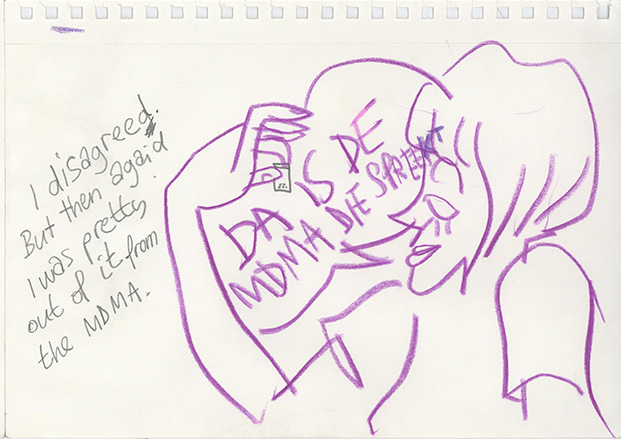 I disagreed.
But then agaid
I was pretty
out of it from
the MDMA.
DA IS DE
MDMA DIE SPREEKT